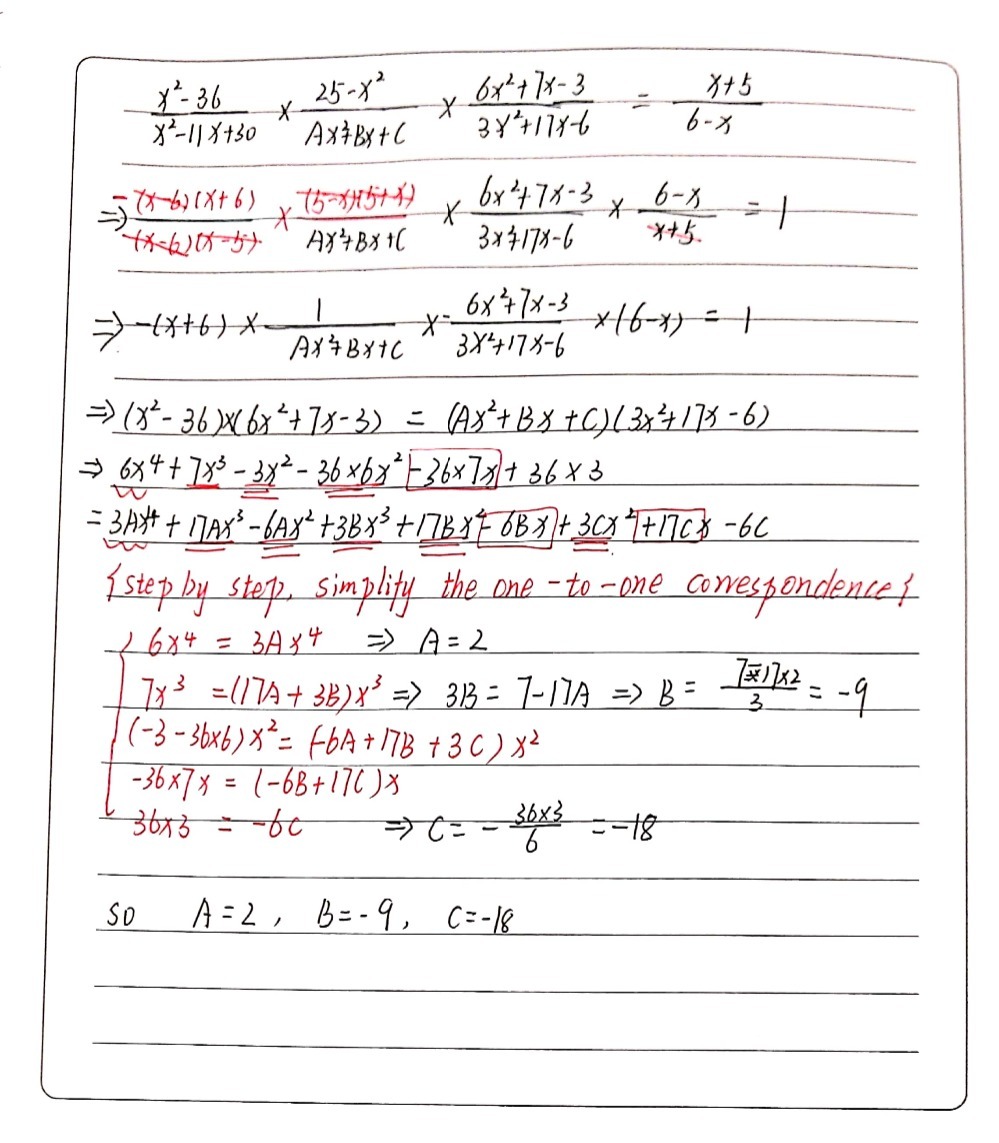 x²-36/x²-11x+30 × 25-x²/Ax²+Bx+C × 6x²+7x-3/3x²+17x-6 = x+5/6-x
⇒ -(x-6)(x+6)/(x-6)(x-5) × (5-x)(5+x)/Ax²+Bx+C × 6x²+7x-3/3x²+17x-6 × 6-x/x+5 = 1
⇒ -(x+6) × 1/Ax²+Bx+C × 6x²+7x-3/3x²+17x-6 ×(6-x) = 1
⇒ (x²-36)×(6x²+7x-3) = (Ax²+Bx+C)(3x²+17x-6)
⇒ 6x⁴+7x³-3x²-36×6x²-36×7x+36×3
=3Ax⁴+17Ax³-6Ax²+3Bx³+17Bx²-6Bx+3Cx²+17Cx-6C
{step by step, simplify the one-to-one correspondence}
{ 6x⁴ = 3Ax⁴ ⇒ A=2
7x³ =(17A+3B)x³ ⇒ 3B = 7-17A ⇒ B = 7-17×2/3 = -9
(-3-36×6)x² = (-6A+17B+3C)x²
-36×7x = (-6B+17C)x
36×3 = -6C ⇒ C= -36×3/6 =-18
so A=2, B=-9, C=-18